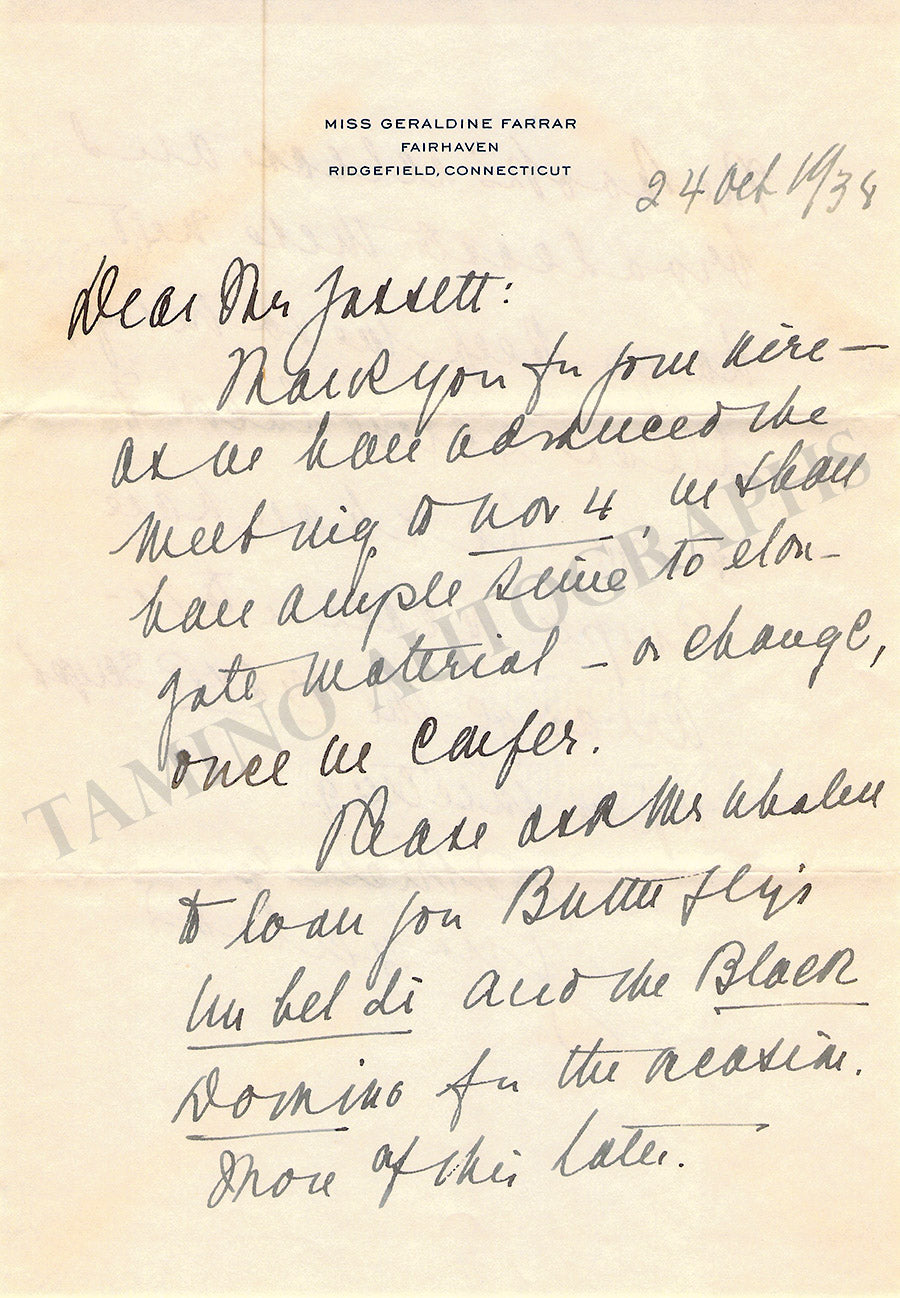 MISS GERALDINE FARRAR
FAIRHAVEN
RIDGEFIELD, CONNECTICUT
24 Oct 1938
Dear Mr Jassett:
Thank you for your wire —
as we have advanced the
meeting to Nov 4, we shall
have ample time to elon-
gate material - or change,
once we confer.
Please ask Mr Whalen
to loan you Butterfly's
Un bel di and the Black
Domino for the occasion.
More of this later.
TAMINO AUTOGRAPHS